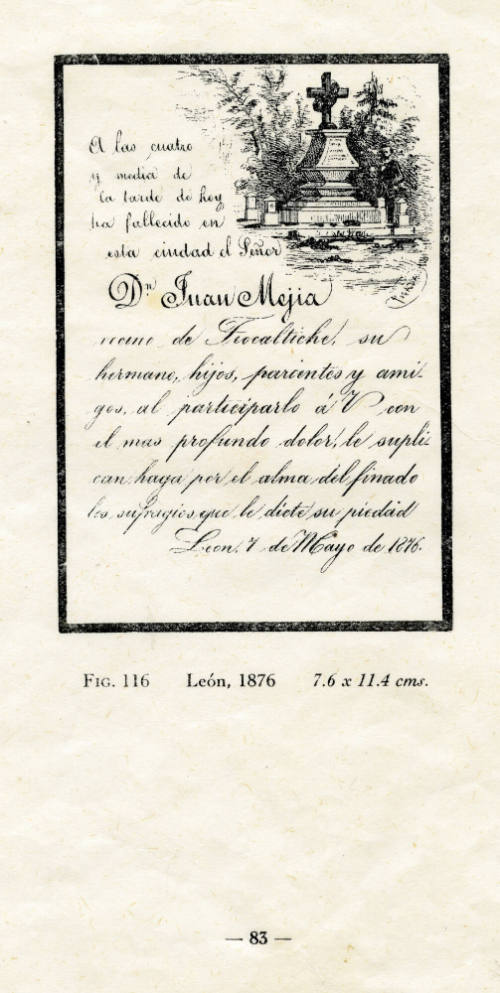 A las cuatro
y media de
la tarde de hoy
ha fallecido en
esta ciudad el Señor
Dn Juan Mejia
vecino de Teocaltiche, su
hermano, hijos, parientes y ami-
gos, al participarlo á V con
el mas profundo dolor, le supli
can haga por el alma del finado
los sufragios que le dicte su piedad
Leon, 7 de Mayo de 1876.
FIG. 116 León, 1876 7.6 x 11.4 cms.
— 83 —